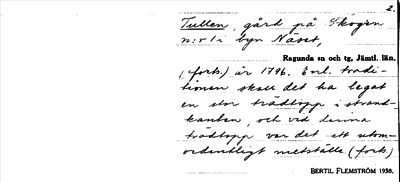 2.
Tullen, gård på Skogen
n:r 1 i byn Näset,
Ragunda sn och tg, Jämtl. län.
(forts.) år 1796. Enl. tradi-
tionen skall det ha legat
en stor trädtopp i strand-
kanten, och vid denna
trädtopp var det ett utom-
ordentligt metställe (forts.)
BERTIL FLEMSTRÖM 1938.